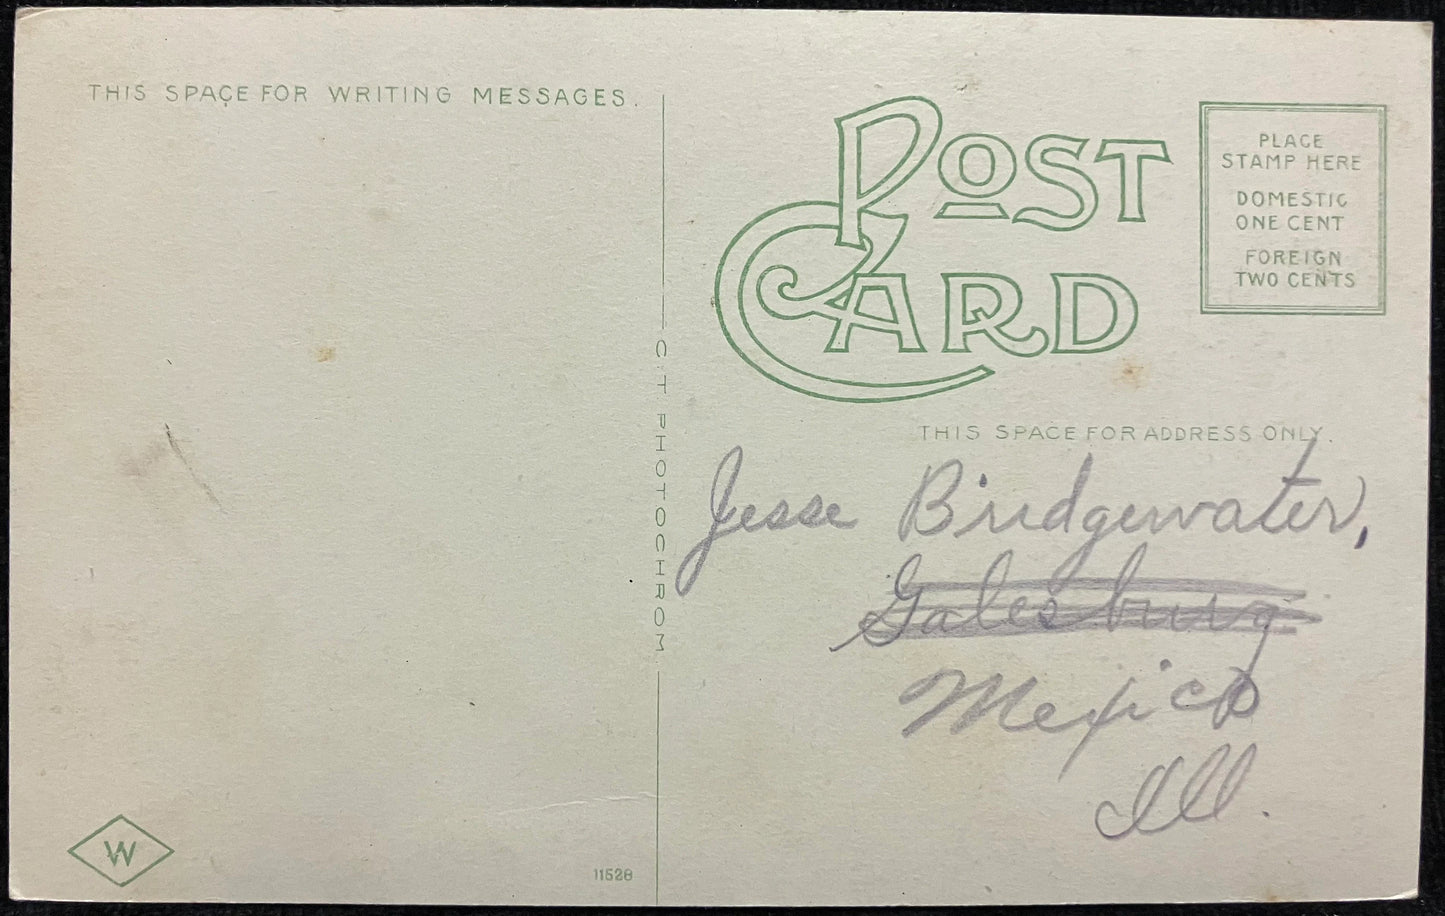 THIS SPACE FOR WRITING MESSAGES.
POST
CARD
PLACE
STAMP HERE
DOMESTIC
ONE CENT
FOREIGN
TWO CENTS
C T PHOTOCHROM
THIS SPACE FOR ADDRESS ONLY.
Jesse Bridgewater,
Galesburg
Mexico
Ill.
W
11528